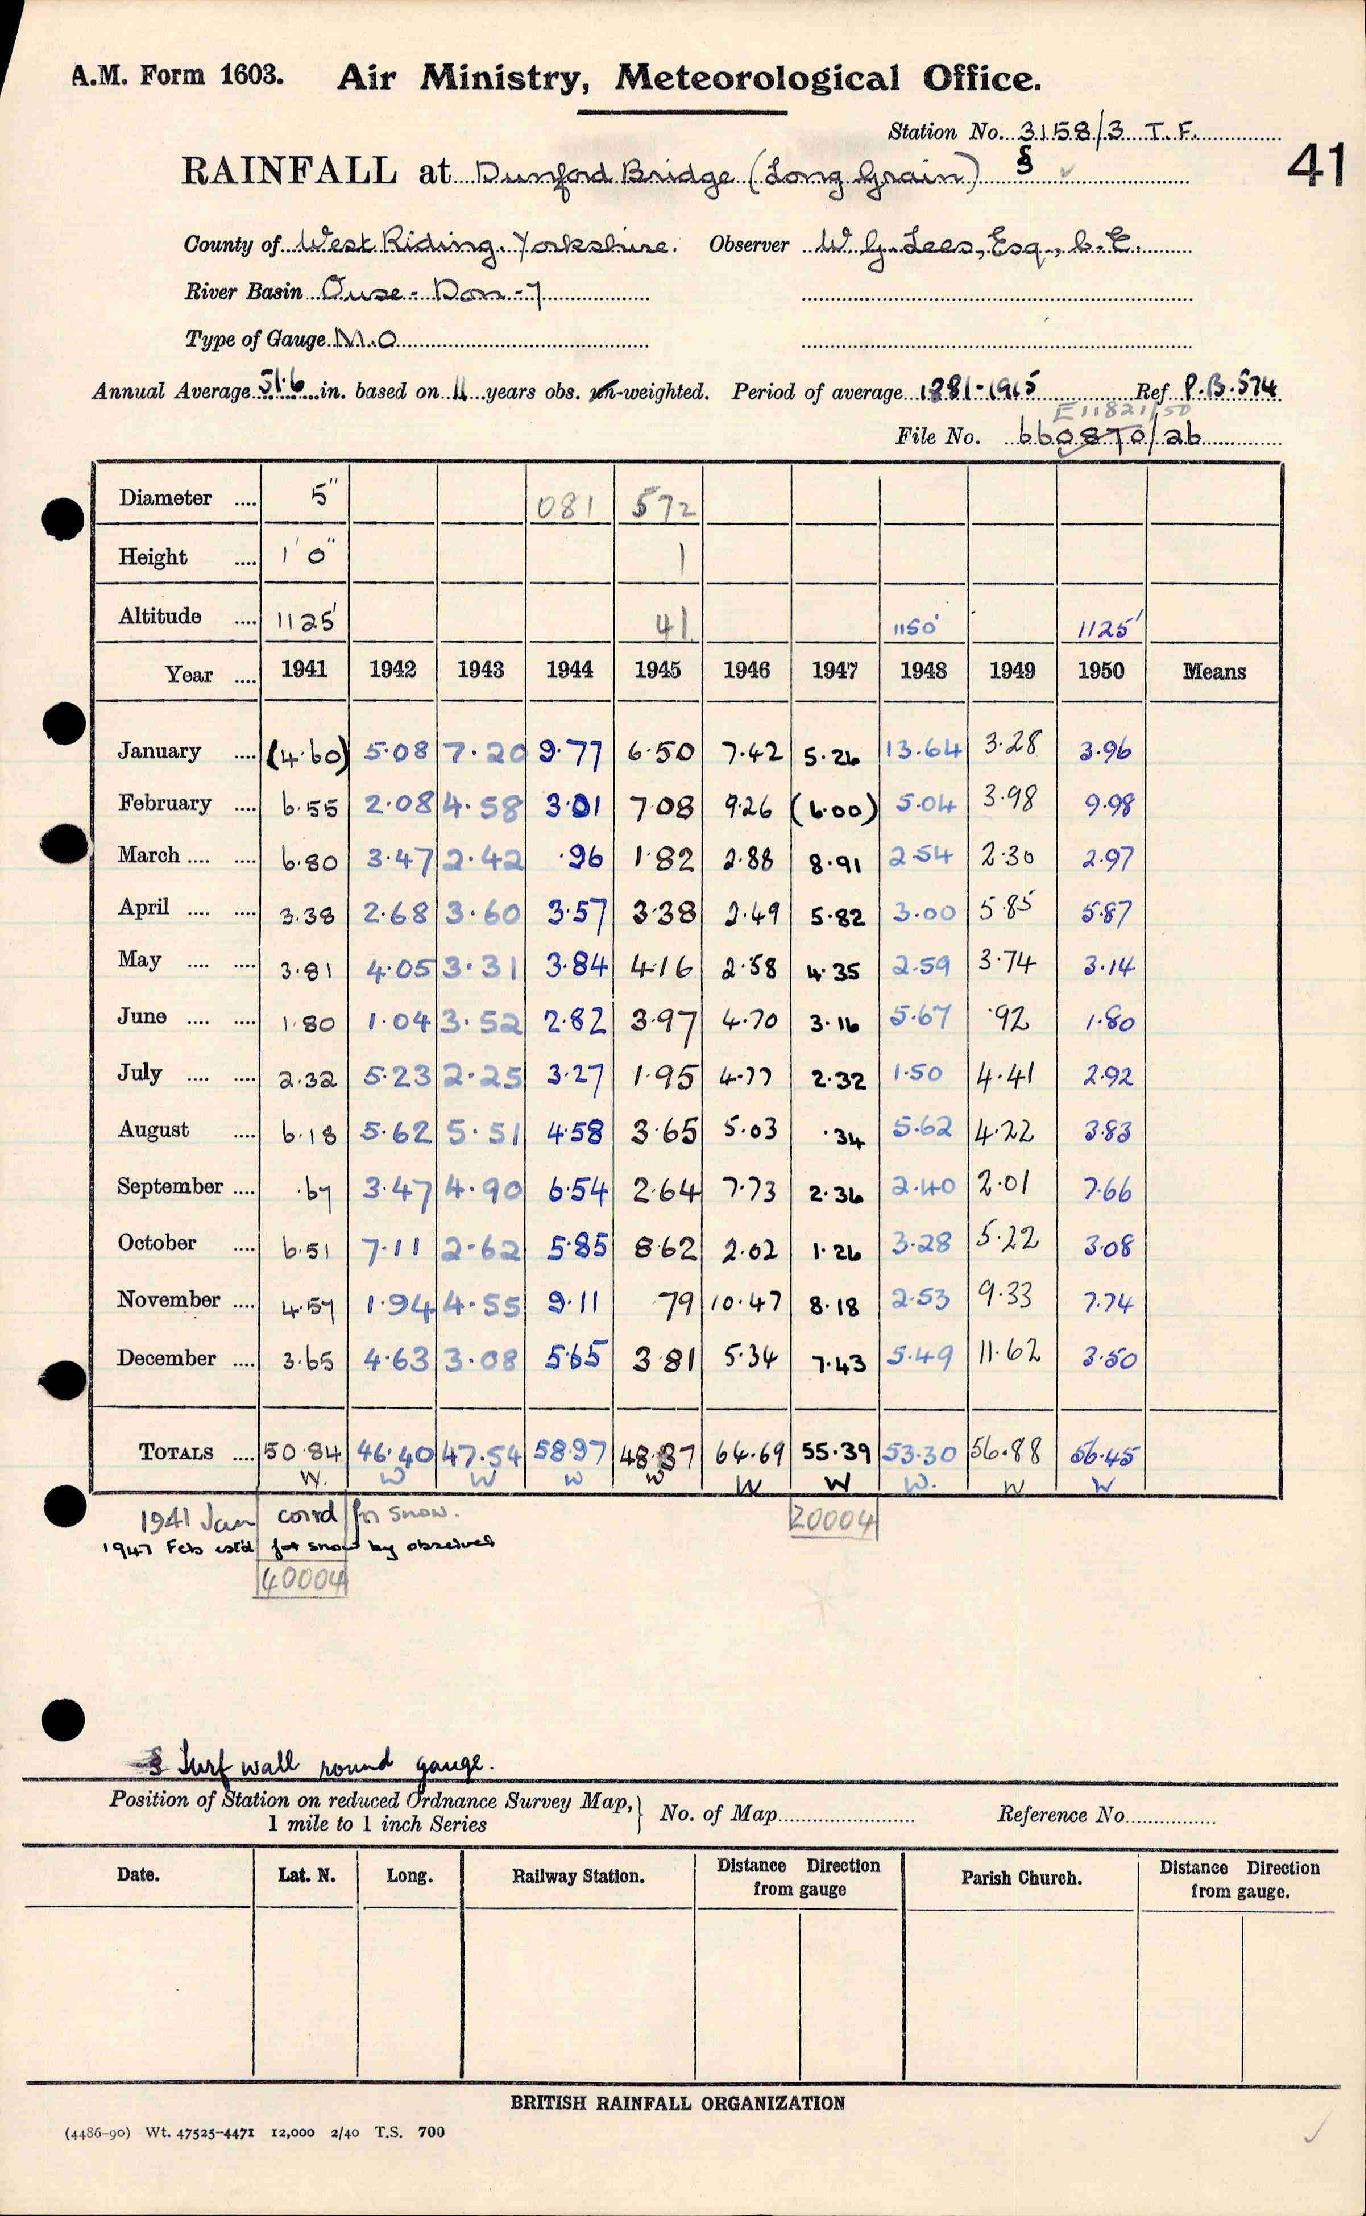 A.M. Form 1603. Air Ministry, Meteorological Office.
Station No. 3158/3 T.F.
41
RAINFALL at Dunford Bridge (Long Grain) §
County of West Riding. Yorkshire. Observer W. G. Lees, Esq., C.E.
River Basin Ouse - Don - 7
Type of Gauge M.O
Annual Average 51.6 in. based on 11 years obs. un-weighted. Period of average 1881-1915 Ref P.B.574
E11821/50
File No. 660870/26
Diameter .... 5" 081 572
Height .... 1' 0" 1
Altitude .... 1125' 41 1150' 1125'
Year .... 1941 1942 1943 1944 1945 1946 1947 1948 1949 1950 Means
January .... (4.60) 5.08 7.20 9.77 6.50 7.42 5.26 13.64 3.28 3.96
February .... 6.55 2.08 4.58 3.01 7.08 9.26 (6.00) 5.04 3.98 9.98
March .... .... 6.80 3.47 2.42 .96 1.82 2.88 8.91 2.54 2.30 2.97
April .... .... 3.38 2.68 3.60 3.57 3.38 2.49 5.82 3.00 5.85 5.87
May .... .... 3.81 4.05 3.31 3.84 4.16 2.58 4.35 2.59 3.74 3.14
June .... .... 1.80 1.04 3.52 2.82 3.97 4.70 3.16 5.67 .92 1.80
July .... .... 2.32 5.23 2.25 3.27 1.95 4.77 2.32 1.50 4.41 2.92
August .... 6.18 5.62 5.51 4.58 3.65 5.03 .34 5.62 4.22 3.83
September .... .67 3.47 4.90 6.54 2.64 7.73 2.36 2.40 2.01 7.66
October .... 6.51 7.11 2.62 5.85 8.62 2.02 1.26 3.28 5.22 3.08
November .... 4.57 1.94 4.55 9.11 79 10.47 8.18 2.53 9.33 7.74
December .... 3.65 4.63 3.08 5.65 3.81 5.34 7.43 5.49 11.62 3.50
TOTALS .... 50.84 46.40 47.54 58.97 48.37 64.69 55.39 53.30 56.88 56.45
W. W W W W W W W. W W
1941 Jan corrd for snow. 20004
1947 Feb estd for snow by observer
40004
§ Turf wall round gauge.
Position of Station on reduced Ordnance Survey Map, 1 mile to 1 inch Series } No. of Map Reference No.
Date. Lat. N. Long. Railway Station. Distance Direction from gauge Parish Church. Distance Direction from gauge.
BRITISH RAINFALL ORGANIZATION
(4486-90) Wt. 47525-4471 12,000 2/40 T.S. 700